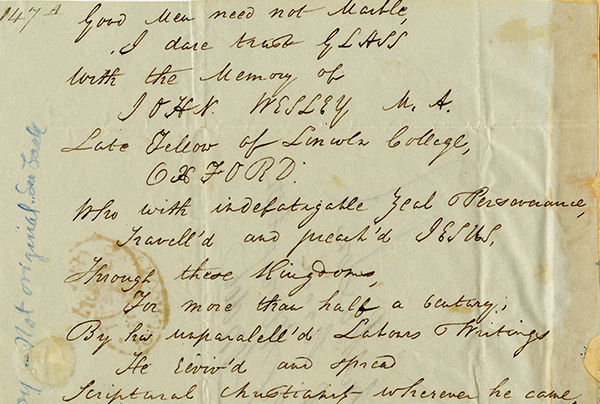 147 A
Good Men need not Marble,
I dare trust GLASS
with the Memory of
JOHN. WESLEY M.A.
Late Fellow of Lincoln College,
OXFORD.
Who with indefatigable Zeal & Perseverance,
Travell'd and preach'd JESUS,
Through these Kingdoms,
For more than half a Century;
By his unparalell'd Labours & Writings
He reviv'd and spread
Scriptural Christianity wherever he came,
Not original. See back